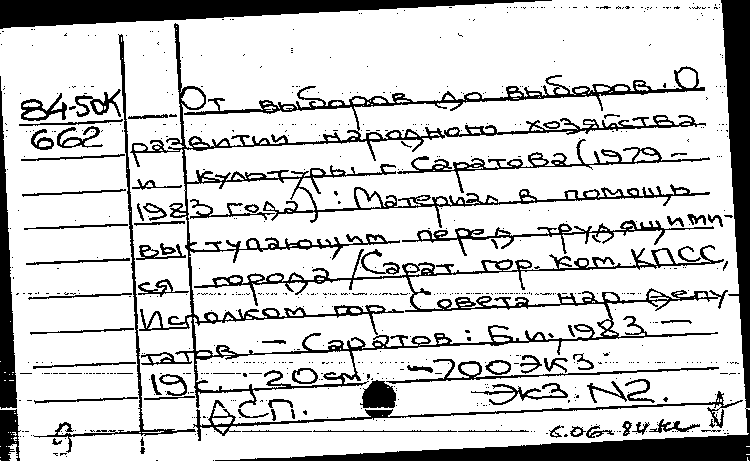 84-50К
662
От выборов до выборов. О
развитии народного хозяйства
и культуры г. Саратова (1979 -
1983 года) : Материал в помощь
выступающим перед трудящими-
ся города / Сарат. гор. ком. КПСС,
Исполком гор. Совета нар. депу-
татов. - Саратов : Б.и., 1983 -
19 с. ; 20 см. - 700 экз.
ДСП. Экз. N2.